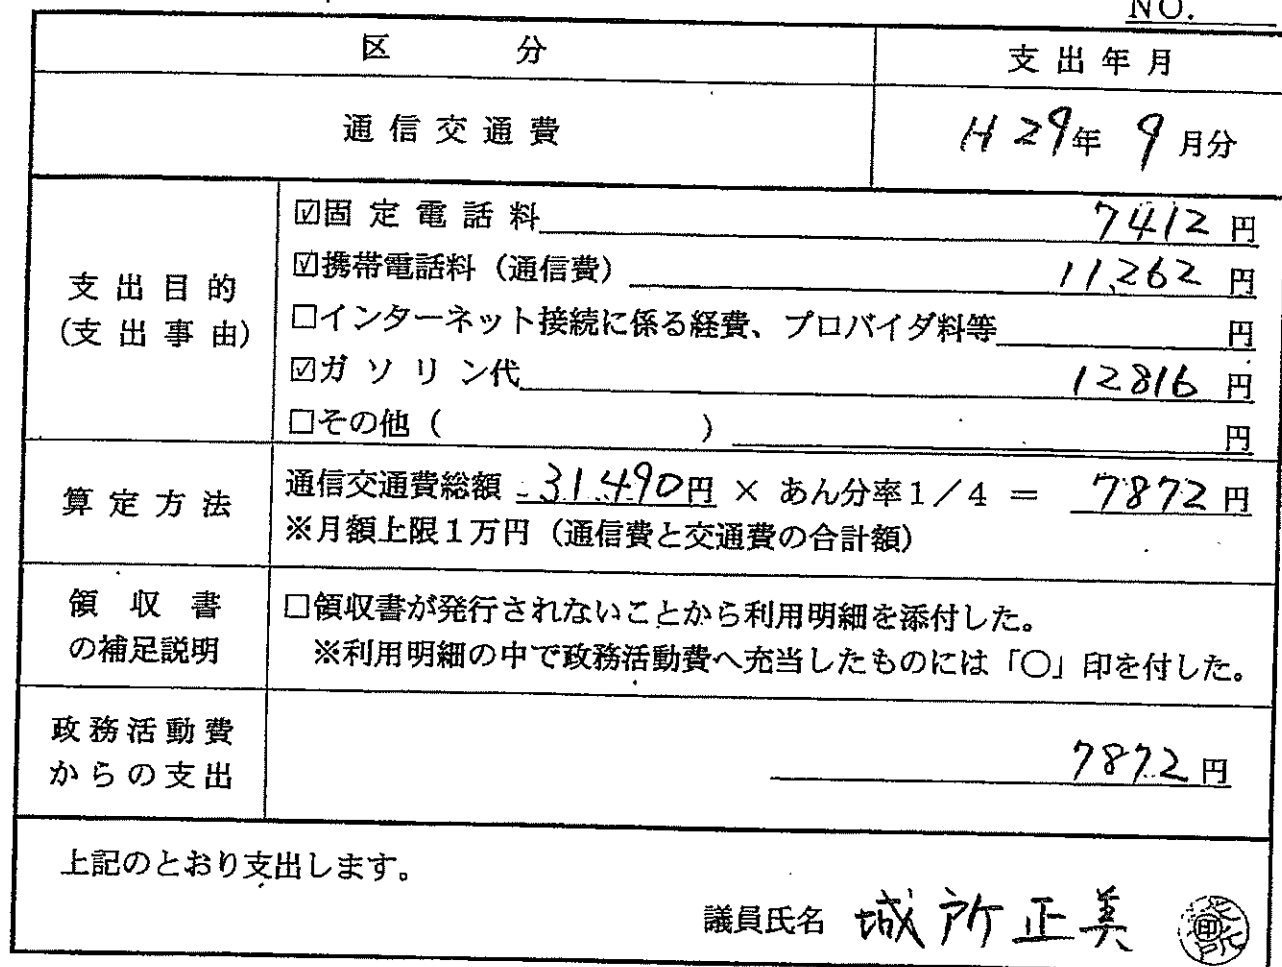 NO.
区分 支出年月
通信交通費 H29年 9月分
☑固定電話料 7412円
☑携帯電話料（通信費） 11,262円
支出目的
（支出事由）
□インターネット接続に係る経費、プロバイダ料等 円
☑ガソリン代 12816円
□その他（ ） 円
算定方法 通信交通費総額 31,490円 × あん分率1／4 ＝ 7872円
※月額上限1万円（通信費と交通費の合計額）
領収書
の補足説明
□領収書が発行されないことから利用明細を添付した。
※利用明細の中で政務活動費へ充当したものには「○」印を付した。
政務活動費
からの支出
7872円
上記のとおり支出します。
議員氏名 城所正美